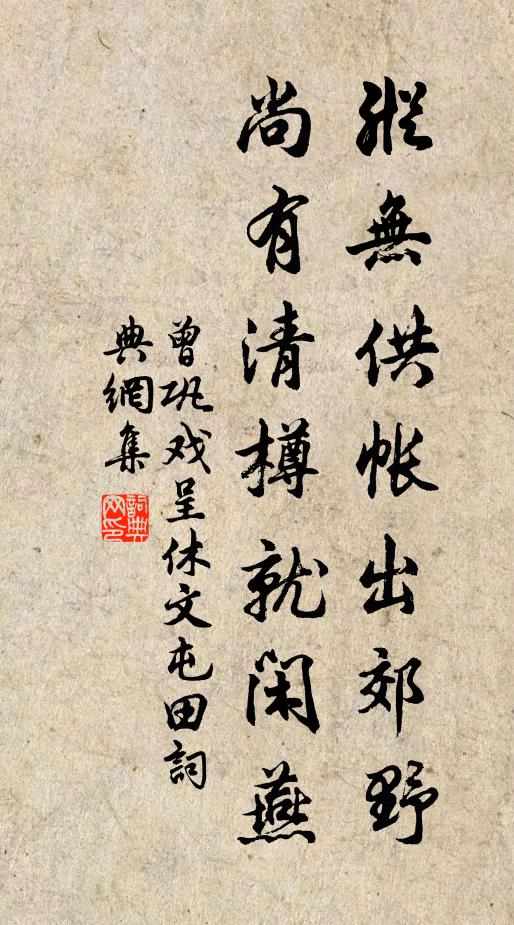 縱無供帳出郊野
尚有清樽就閑燕
曾巩戏呈休文屯田詞
典網集
詞典
网印